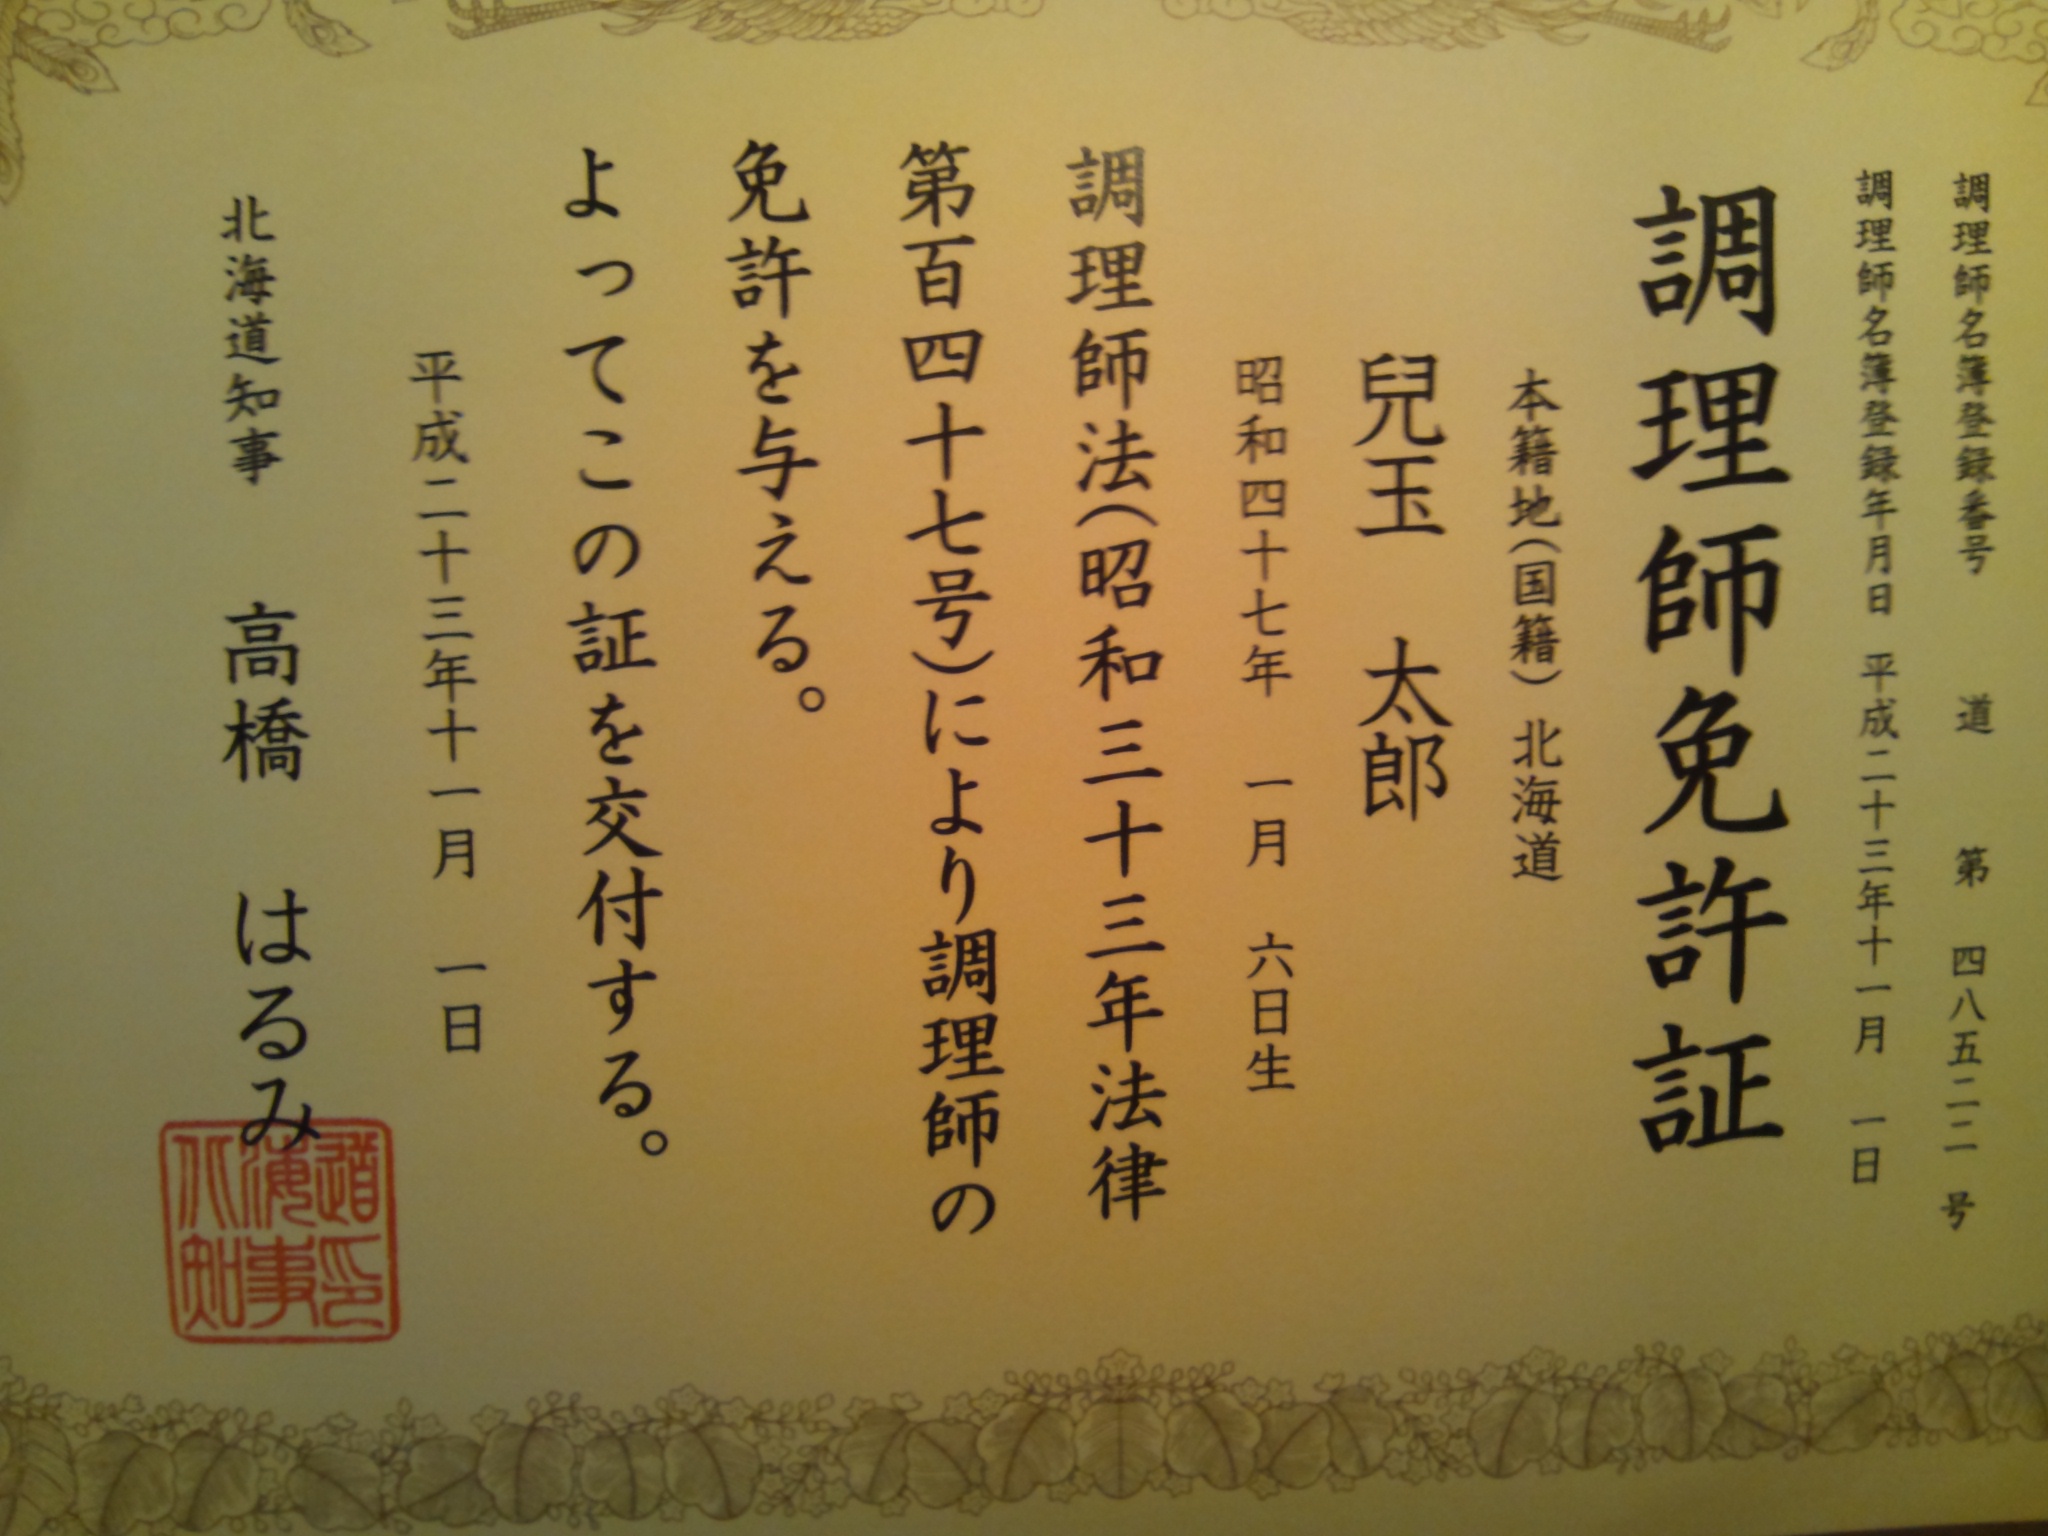 調理師名簿登録番号 道 第 四八五二二 号
調理師名簿登録年月日 平成二十三年十一月 一日
調理師免許証
本籍地(国籍) 北海道
兒玉 太郎
昭和四十七年 一月 六日生
調理師法(昭和三十三年法律
第百四十七号)により調理師の
免許を与える。
よってこの証を交付する。
平成二十三年十一月 一日
北海道知事 高橋 はるみ
北海道知事印